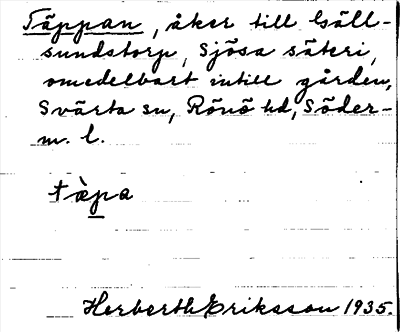 Täppan, åker till Gäll-
sundstorp, Sjösa säteri,
omedelbart intill gården,
Svärta sn, Rönö hd, Söder-
m. l.
tæ̀pa
Herberth Eriksson 1935.